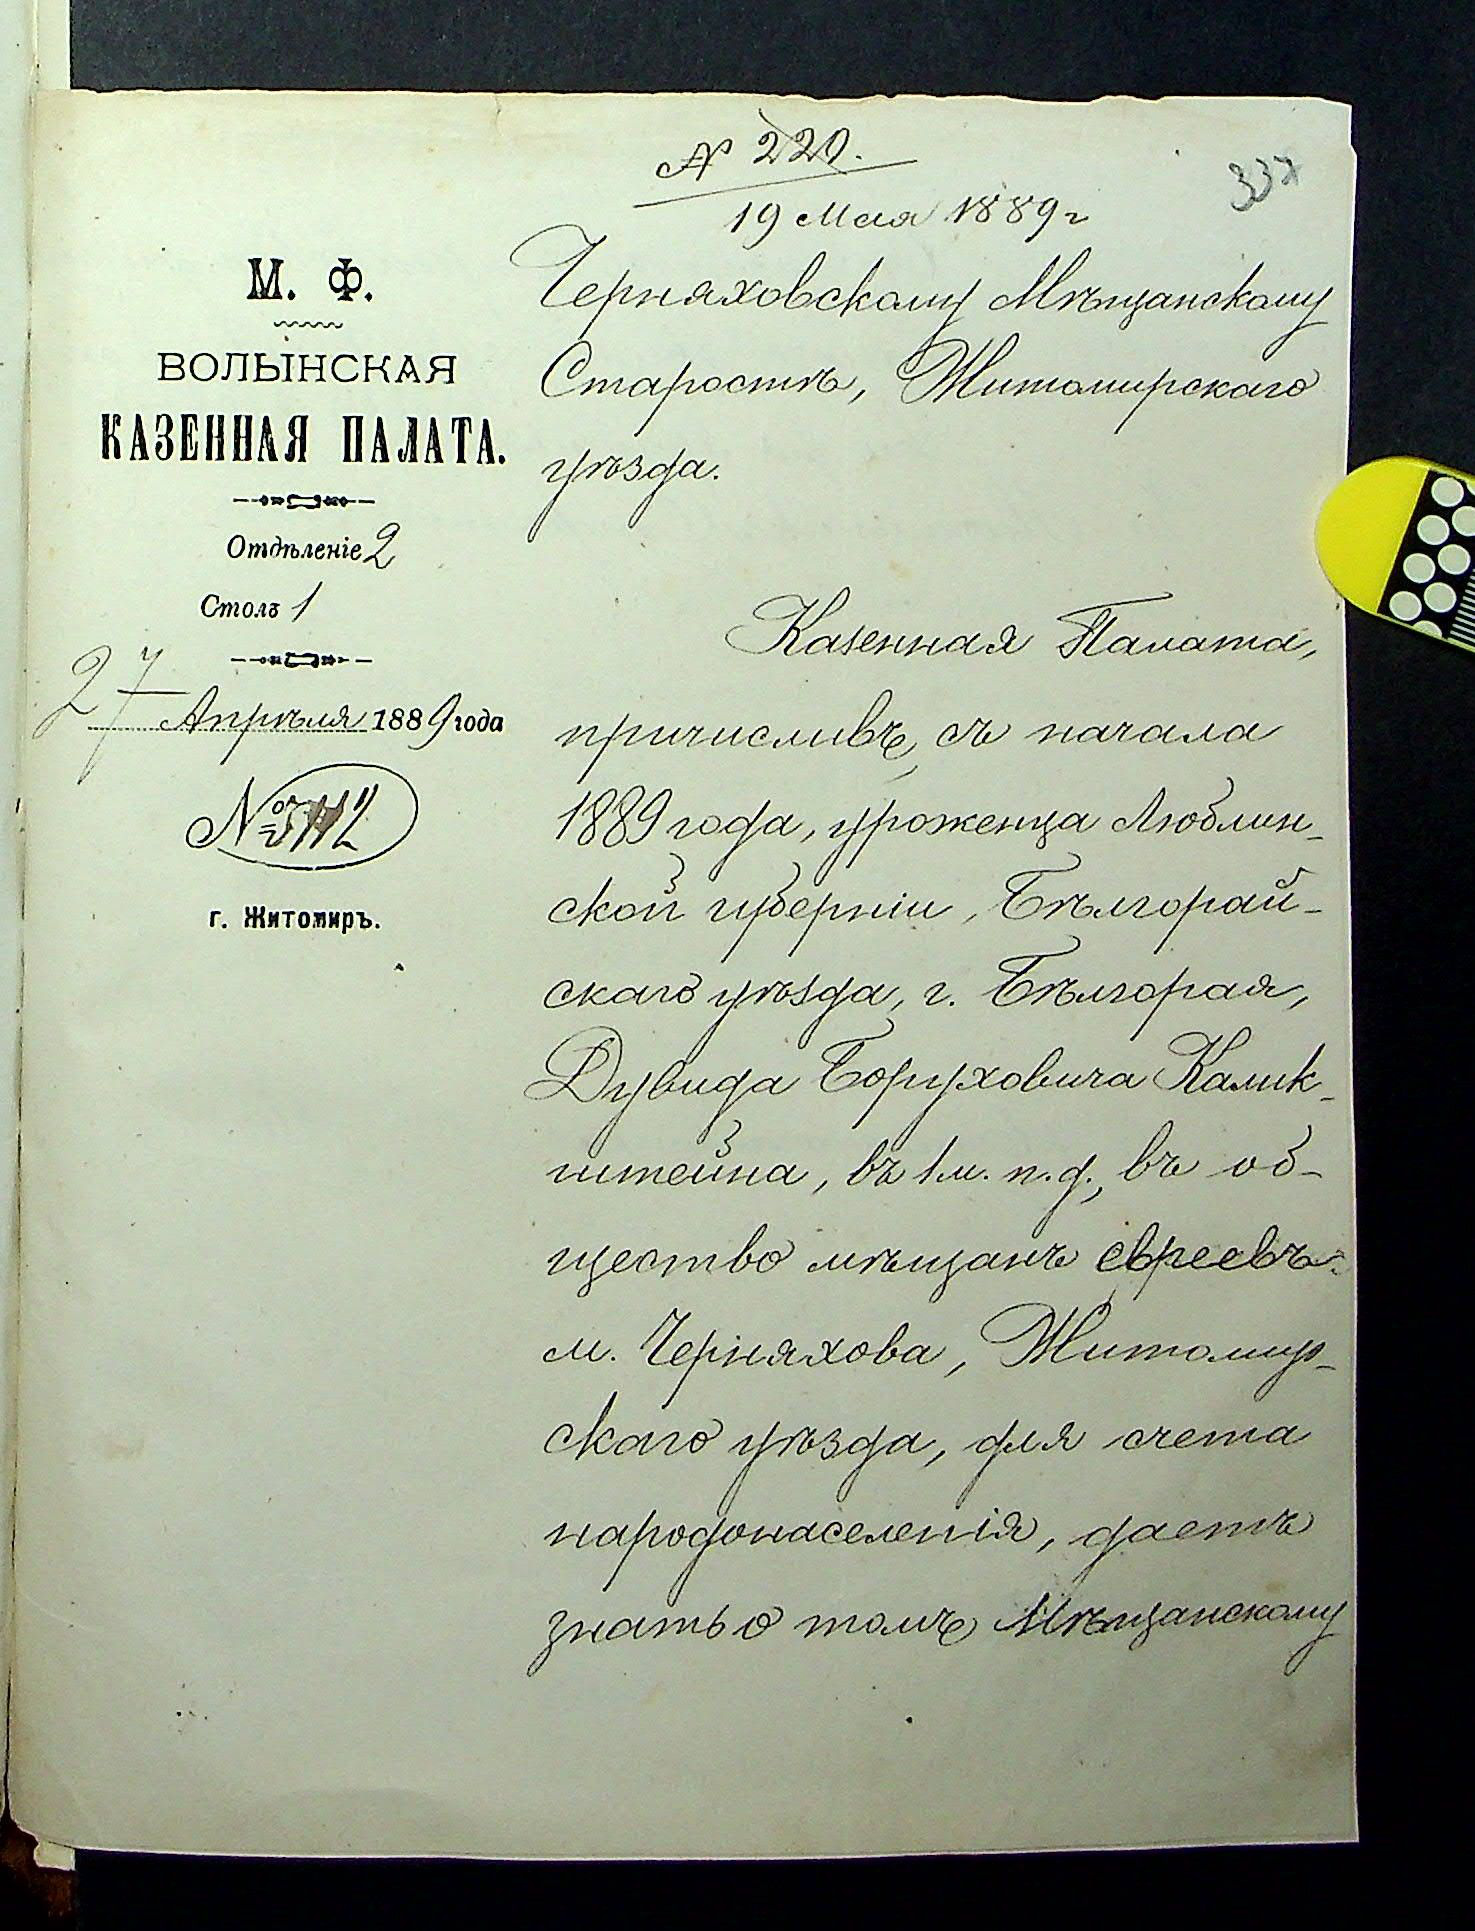 № 220.
337
19 Мая 1889 г
М. Ф.
ВОЛЫНСКАЯ
КАЗЕННАЯ ПАЛАТА.
Отдѣленіе 2
Столъ 1
27 Апрѣля 1889 года
№
г. Житомиръ.
Черняховскому Мѣщанскому
Старостѣ, Житомирскаго
уѣзда.
Казенная Палата,
причисливъ, съ начала
1889 года, уроженца Люблин-
ской губерніи, Бѣлгорай-
скаго уѣзда, г. Бѣлгорая,
Дувида Боруховича Калик-
штейна, въ 1 м. п. д., въ об-
щество мѣщанъ евреевъ
м. Черняхова, Житомир-
скаго уѣзда, для счета
народонаселенія, даетъ
знать о томъ Мѣщанскому